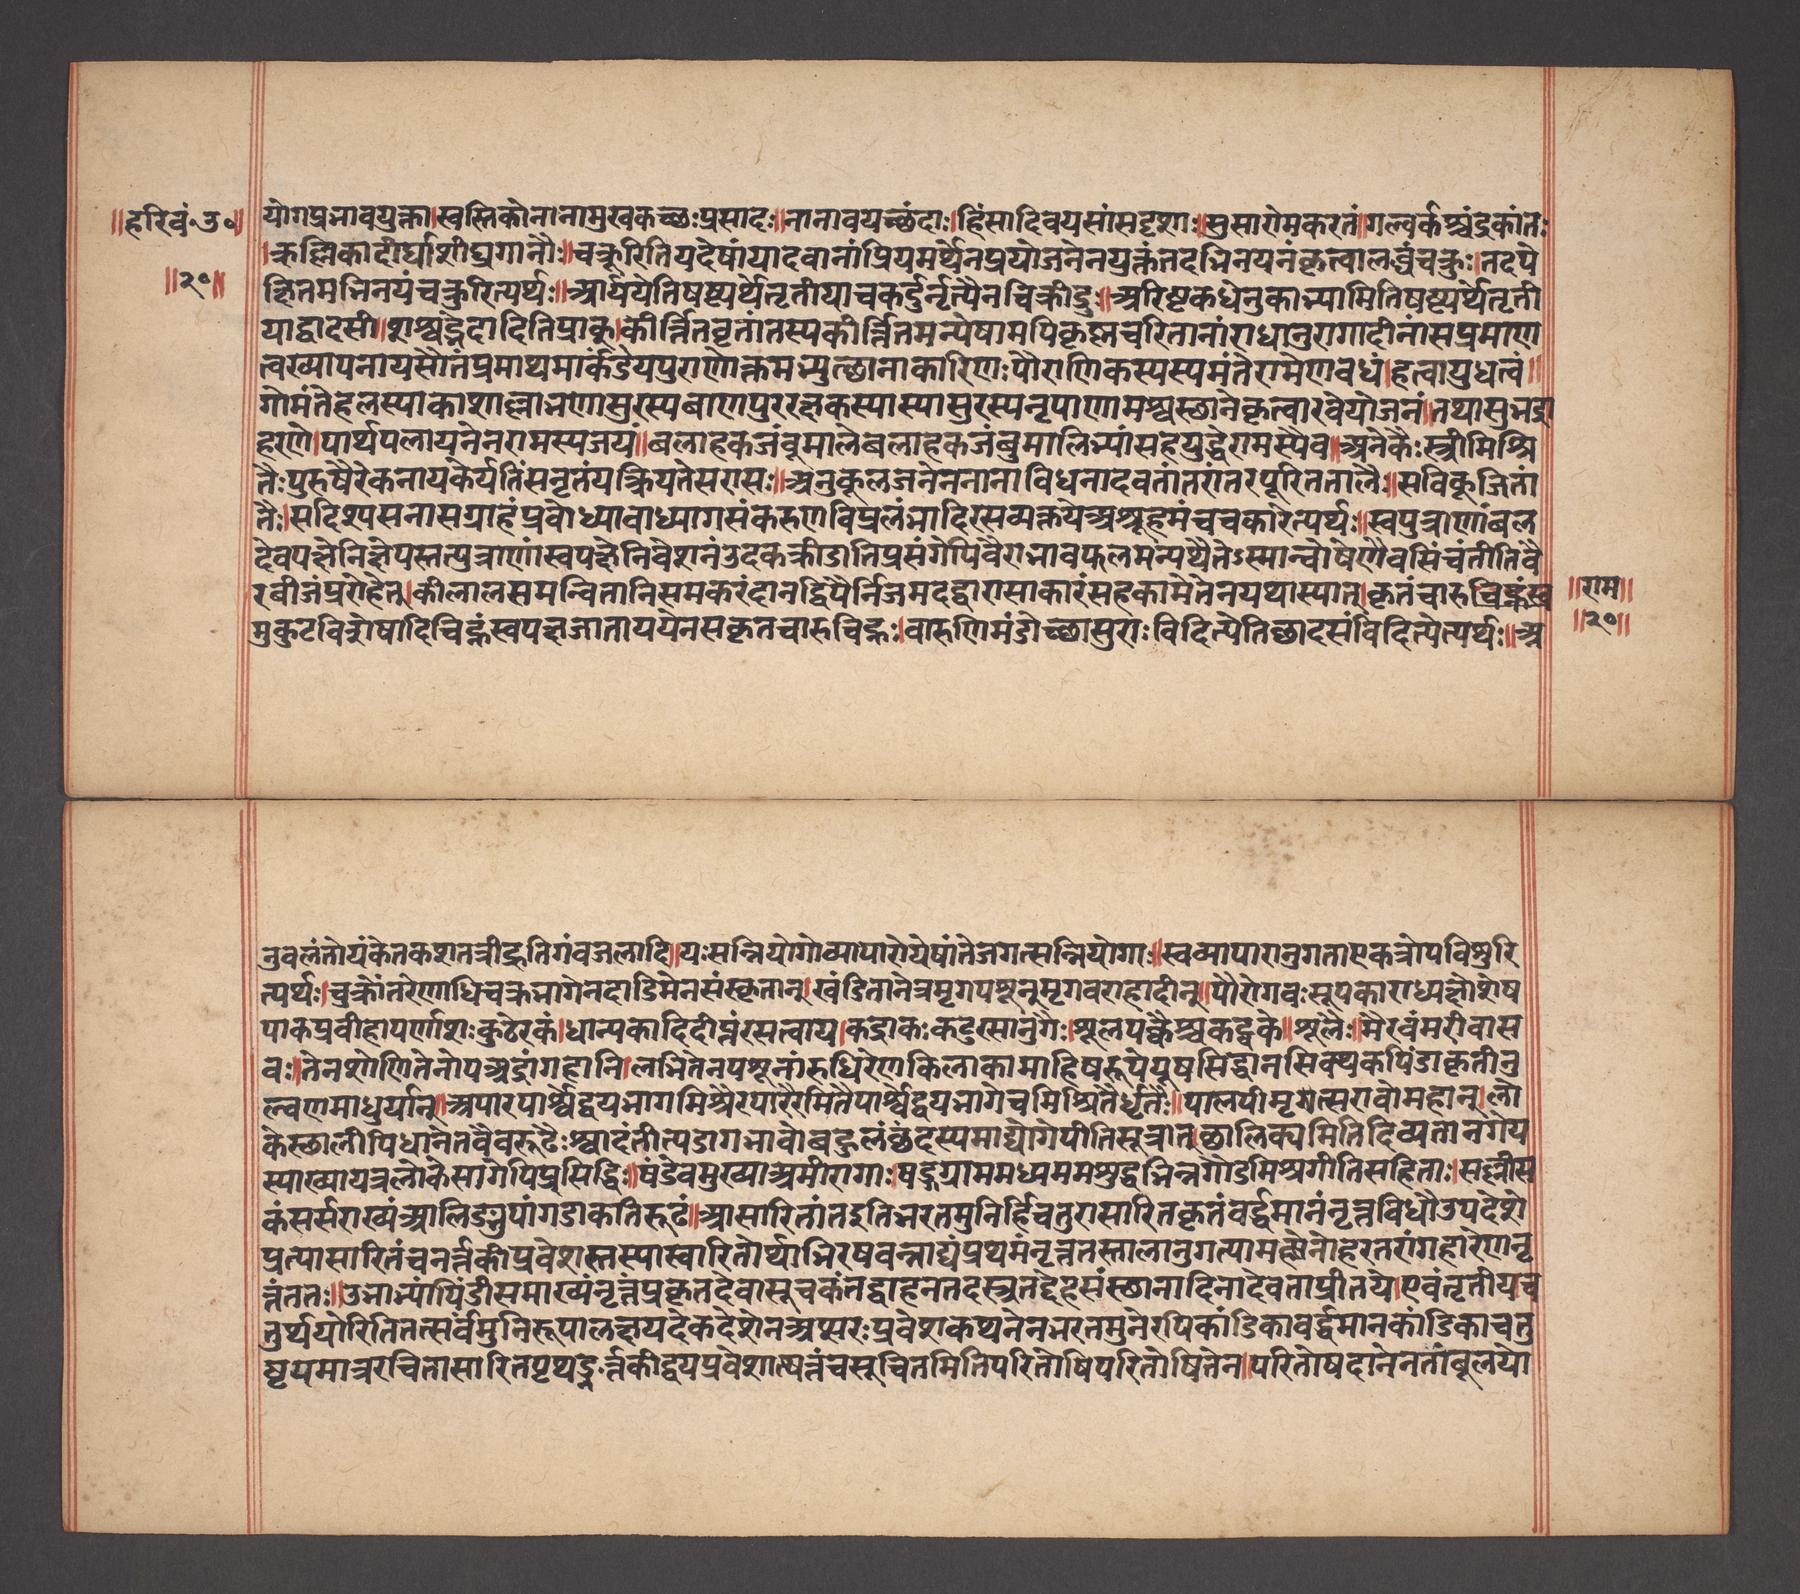 ॥हरिवं.उ॰॥
॥२०॥
योगप्रभावयुक्ता।स्वस्तिकोनानामुखकच्छःप्रसादः॥नानावयच्छंदाः।हिंसादिवयसांसदृशाः॥सुसारोमकरतं॥गल्वर्कश्चंद्रकांतः
।कुल्लिकादीर्घाशीघ्रगानौः॥चक्रूरितियदेषांयादवानांप्रियमर्थेनप्रयोजनेनयुक्तंतदभिनयनंकृत्वालब्धंचक्रुः।तदपे
क्षितमभिनयंचक्रुरित्यर्थः॥आर्ययेतिषष्ठ्यर्थेतृतीयाचकर्दुर्नृत्येनचिक्रीडुः॥अरिष्टकधेनुकाभ्यामितिषष्ठ्यर्थेतृती
याद्वादसी॥शश्वद्गदादितिप्राक्।कीर्त्तितवृतांतस्यकीर्त्तितमन्येषामपिकृष्णचरितानांराधानुरागादीनांसप्रमाण
त्वख्यापनायसौतंप्रमाथ्यमार्कंडेयपुराणोक्तमभ्युत्छानाकारिणःपौराणिकस्यस्यमंतेरामेणवधं।हत्वायुधत्वं॥
गोमंतेहलस्याकाशाल्लाभणासुरस्यबाणपुररक्षकस्यास्यासुरस्यनृपाणामश्वस्छानेकृत्वारवेयोजनं॥तथासुभद्रा
हरणे।पार्थपलायनेनरामस्यजयं॥बलाहकजंबूमालेबलाहकजंबुमालिभ्यांसहयुद्धेरामस्यैव॥अनेकैःस्त्रीमिश्रि
तैःपुरुषैरेकनायकैर्यतिंसनृतंयक्रियतेसरासः॥अनुकूलजनेननानाविधनादवतांतरांतरपूरिततालैः॥सविकूजितां
तैः।सदिश्यसनासग्राहंप्रवोध्यावाध्यागसंकरुणविप्रलंभादिरसव्यक्तयेअश्रूहमंचचकारेत्यर्थः॥स्वपुत्राणांबल
देवपक्षेनिक्षेपस्तत्पुत्राणांस्वपक्षेनिवेशनंउदकक्रीडातिप्रसंगेपिवैराभावफलमन्यथैतेऽस्मान्वोषेणैवसिंचंतीतिवै
रबीजंप्ररोहेत्।कीलालसमन्वितानिसमकरंदानद्विपैर्निजमदद्वारासाकारंसहकामेतेनयथास्यात्।कृतंचारुचिह्नंस्व
मुकुटविशेषादिचिह्नंस्वपक्षजातायययेनसकृतचारुचिह्नः।वारुणिमंडोच्छासुराःविदित्येतिछादसंविदित्येत्यर्थः॥अ
॥राम॥
॥२०॥
नुबलंतोयंकेतकशतत्रीद्रुतिगंवजलादि॥यःसन्नियोगोव्यापारोयेषांतेजगत्सन्नियोगाः॥स्वव्यापारानुगताएकत्रोपविशुरि
त्यर्थः।चुक्रोंतरेणाधिचक्रभागेनदाडिमेनसंस्कृतान्।खंडितानेत्रमृगपशून्मृगवराहादीन्॥पौरोगवःसूपकाराध्यक्षोशेष
पाकप्रवीहापर्णाशःकुठेरकं।धान्यकोदिदीप्तंरसत्वाय।कद्राकःकटुरसानुगैः।शूलपक्वैश्चकद्वकै॥शूलैः।मैरवंमरीवास
वः।तेनशोणितेनोपअद्गांगहानि।लभितेनपशूनांरुधिरेणकिलाकामाहिषरूपेयूषसिद्धानसिक्थकपिंडाकृतीनु
ल्वणमाधुर्यान्॥अपारपार्श्वद्वयभागमिश्रैरपारैरमितैपार्श्वद्वयभागेचमिश्रितैर्धृतैः॥पालपीमृण्मत्सरावोमहान्।लो
केस्छालीपिधानेतवैवरूटैःश्वादंतीत्यडागभावोबहुलंछंदस्यमाद्योगेपीतिसूत्रात्।छालिक्यमितिदिव्यतानगेय
स्याख्यायत्रलोकेसागेपिप्रसिद्धिः॥षडेवमुख्याअमीरागाः।षड्जग्राममध्यममशुद्धभिन्नगौडमिश्रगीतिसहिताः।सल्लीस
कंसर्सराख्यंआलिड्युपांगडाकतिरूढं॥आसारितांतइतिभरतमुनिर्हिचतुरासारितकृतंवर्द्धमानंनृत्तविधौउपदेशे
प्रत्यासारितंचनर्त्तकीप्रवेशस्तस्यास्वारितोर्थ्याभिरषवन्नाद्यंप्रथमंनृत्ततस्तालानुगत्यामक्षोनोहरतरांगहारेणनृ
त्तंततः॥उभाभ्यांपिंडीसमाख्यंनृत्तंप्रकृतदेवासूचकंतद्वाहनतदस्त्रतद्देहसंस्छानादिनादेवताप्रीतये।एवंतृतीयच
तुर्थयोरितितत्सर्वंमुनिरूपालक्षयदेकदेशेनअप्सरःप्रवेशकथनेनभरतमुनेरपिकांडिकावर्द्धमानकांडिकाचतु
ष्टयमात्ररचितासारितपृथङ्नर्त्तकीद्वयप्रवेशात्यत्नंचसूचितमितिपरितोषिपरितोषितेन॥परितोषदानेनतांबूलयो